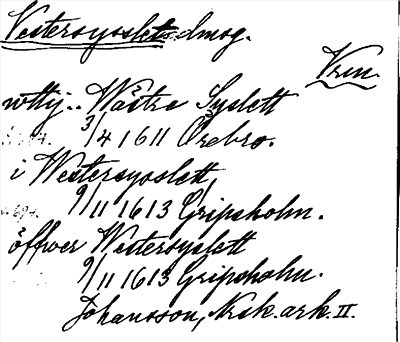 Vestersysslet dmog.
Vren.
wttij.. Wästre Sysslett
3/4 1611 Örebro.
i Westersysslett,
9/11 1613 Gripsholm.
öffwer Westersyslett
9/11 1613 Gripsholm.
Johansson, Nsk. ark. II.